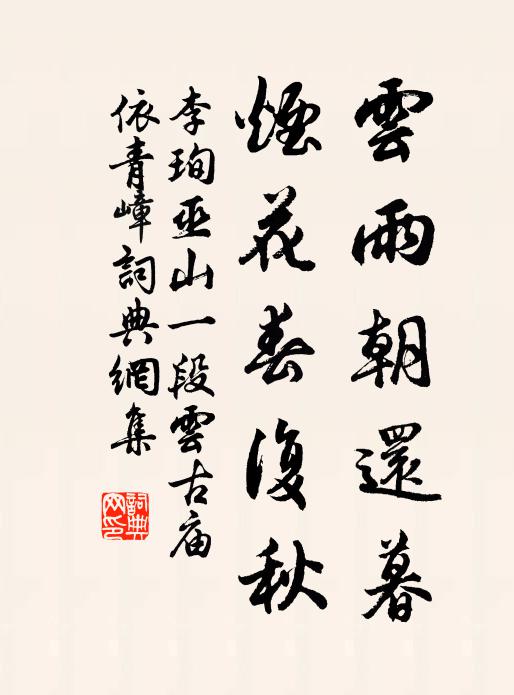 雲雨朝還暮
煙花春復秋
李珣巫山一段雲古庙
依青嶂詞典網集
詞典網印